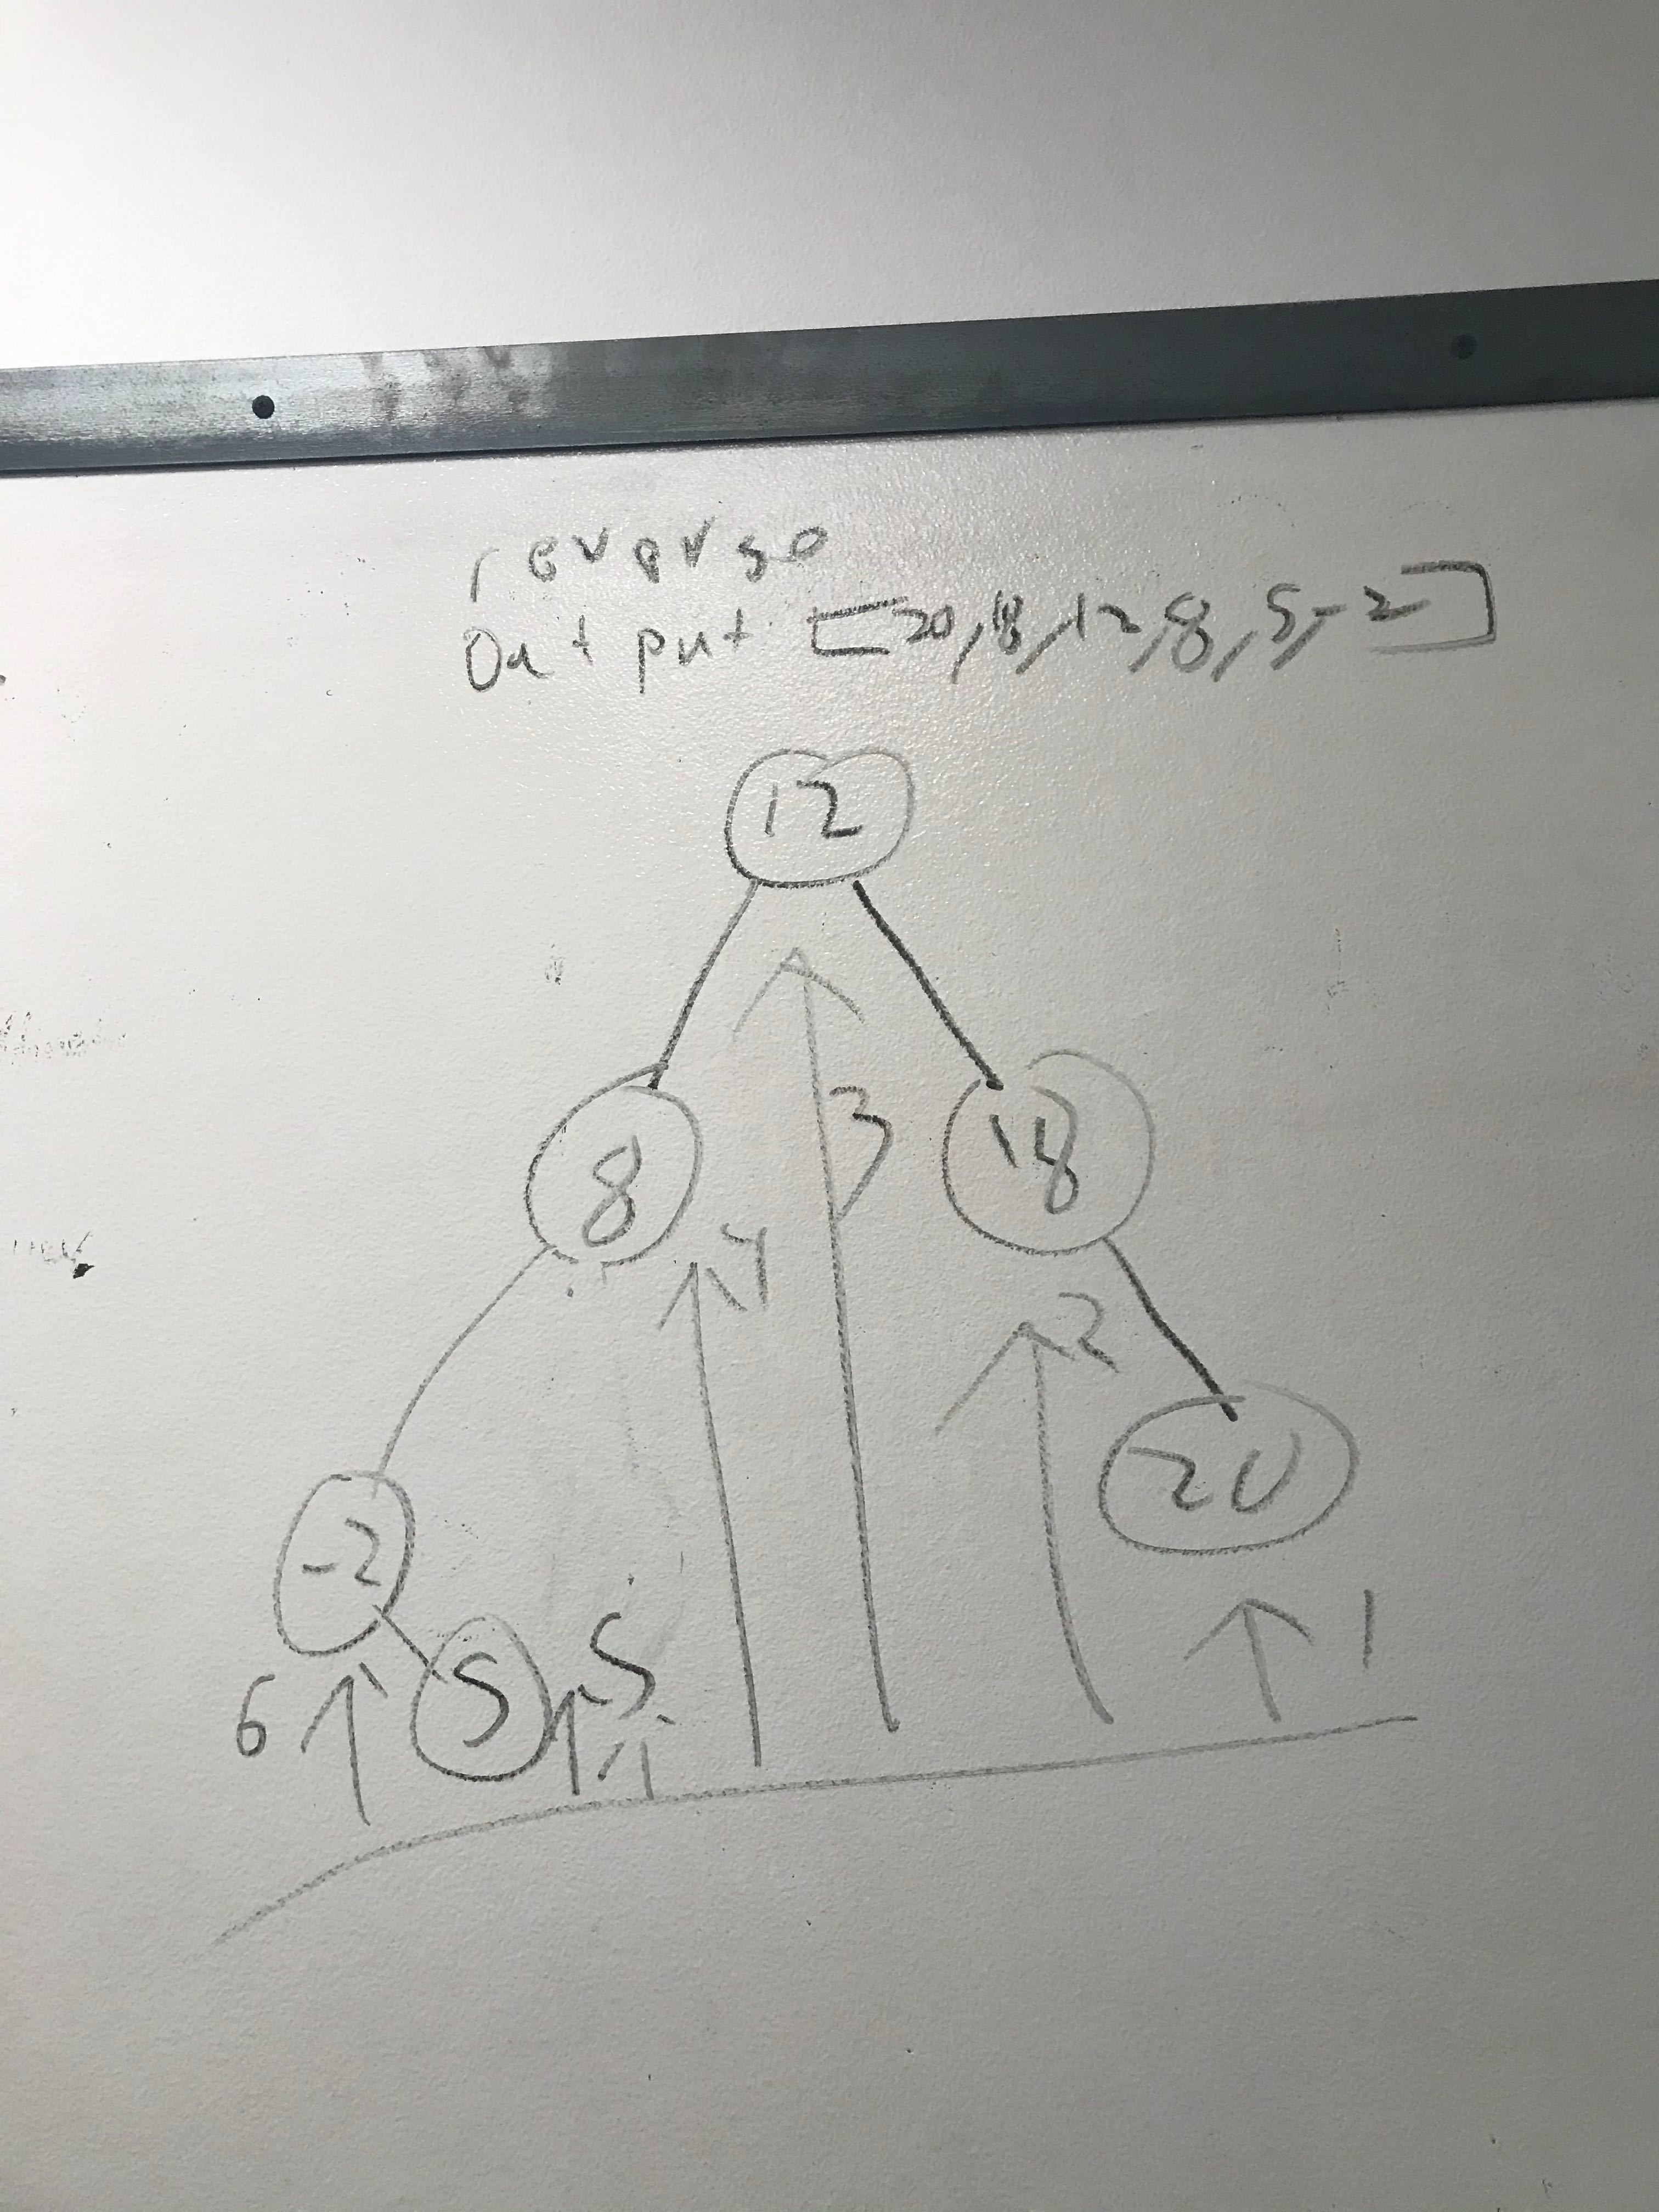 reverse
Output [20,18,12,8,5,-2]
12
8
18
3
4
2
20
-2
5
5
1
6